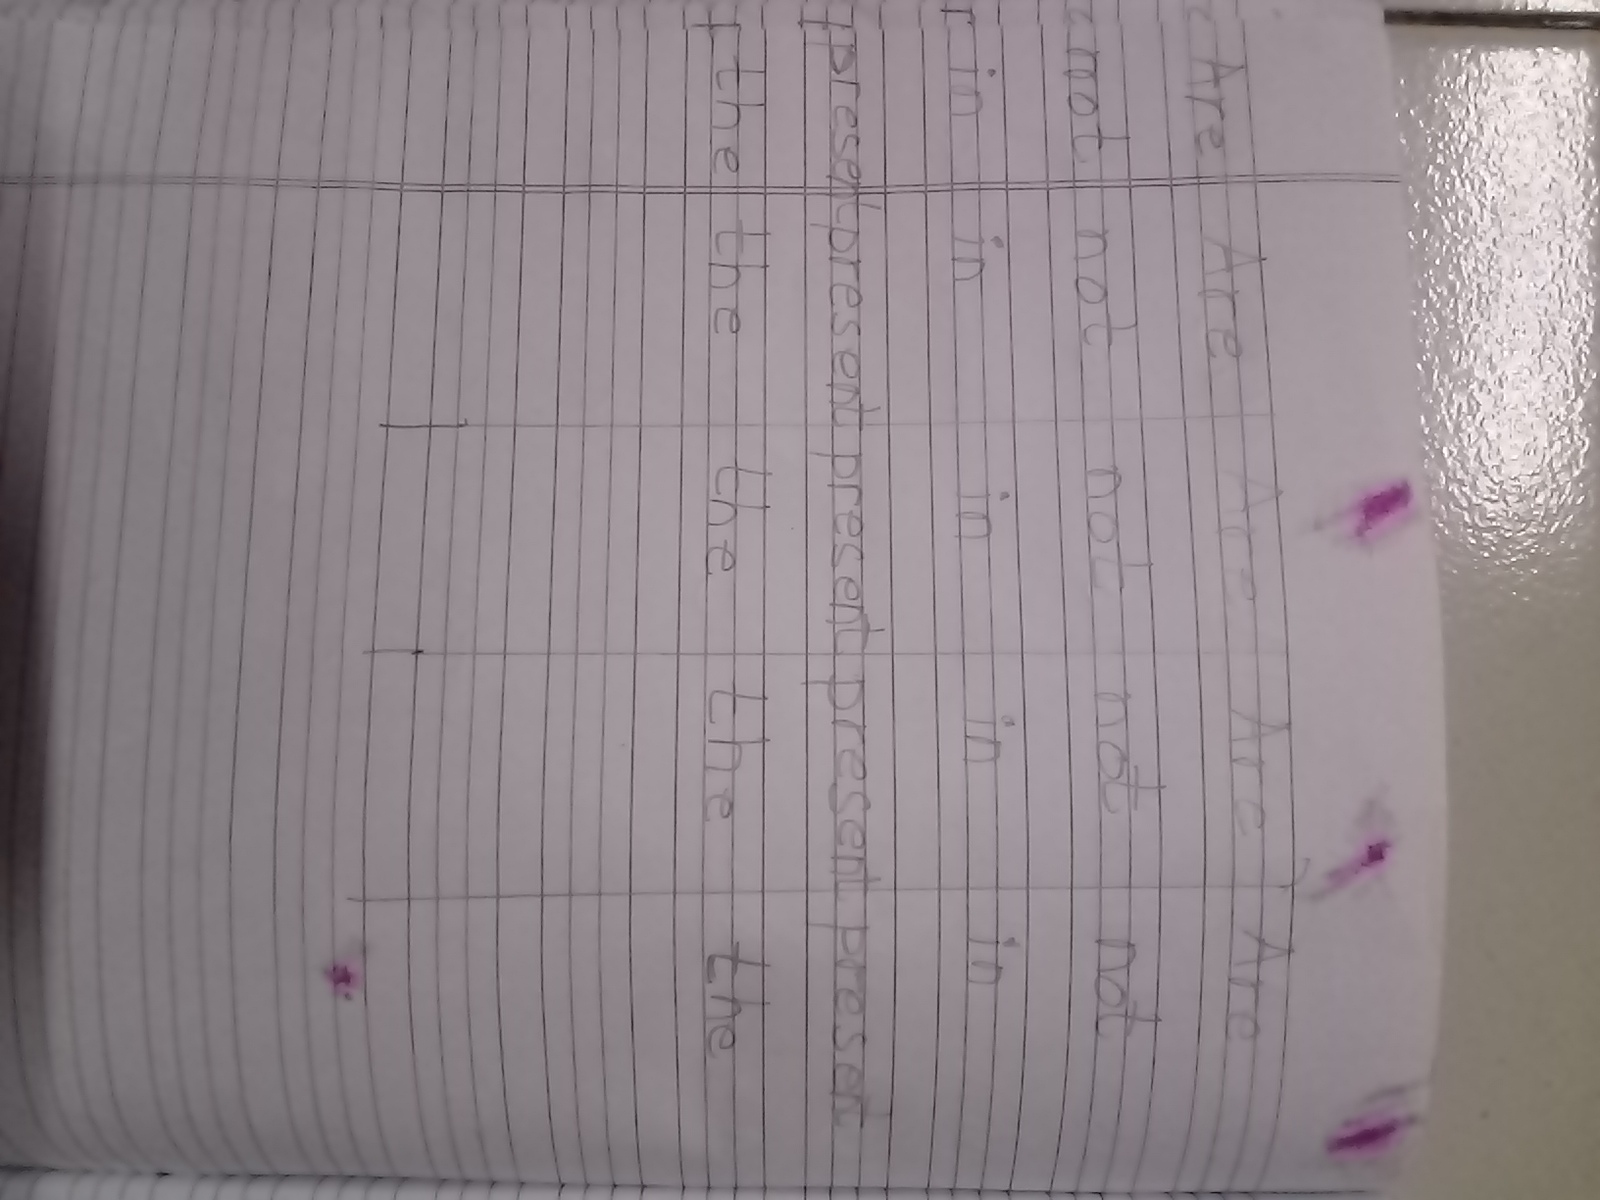 Are Are Are Are Are
not not not not not
in in in in in
present present present present present
the the the the the